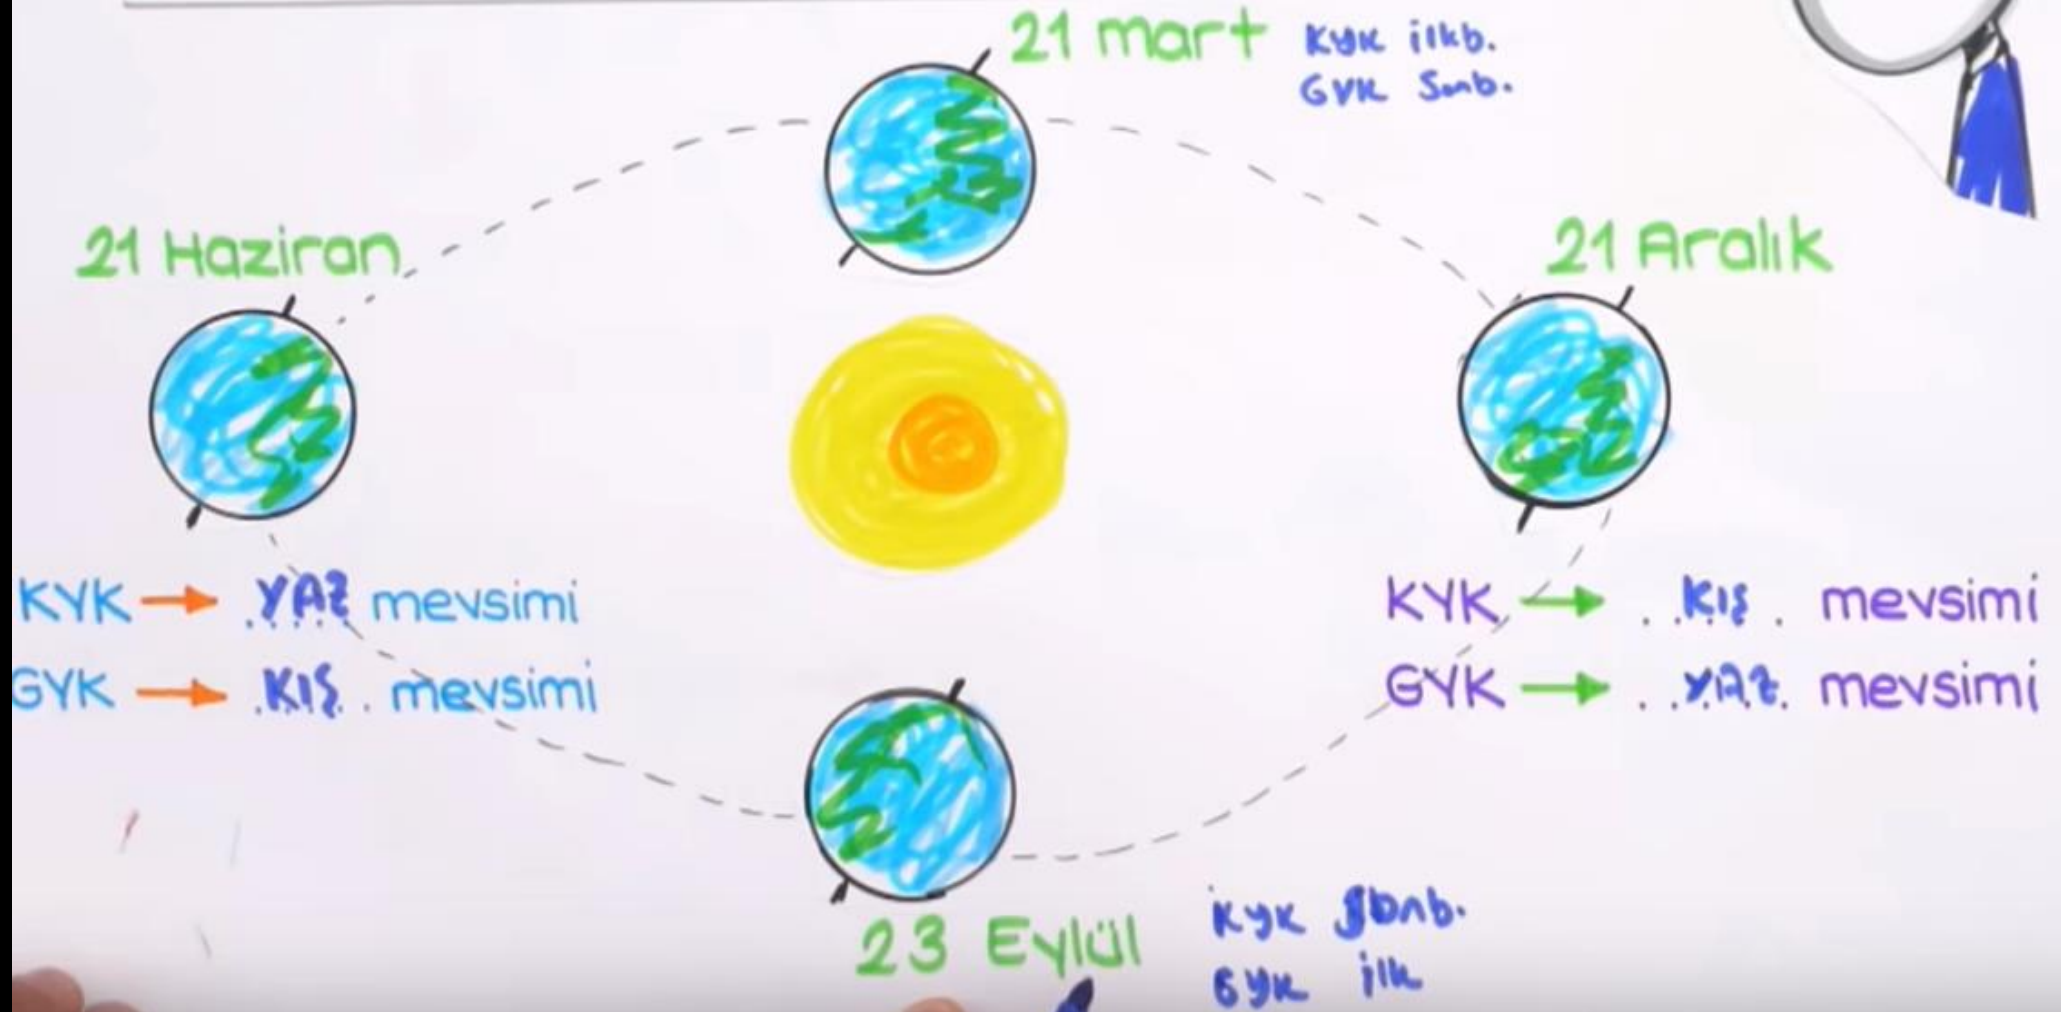 21 mart
KYK ilkb.
GYK Sonb.
21 Haziran
21 Aralık
KYK → YAZ mevsimi
GYK → KIŞ mevsimi
KYK → KIŞ mevsimi
GYK → YAZ mevsimi
23 Eylül
KYK Sonb.
GYK ilk